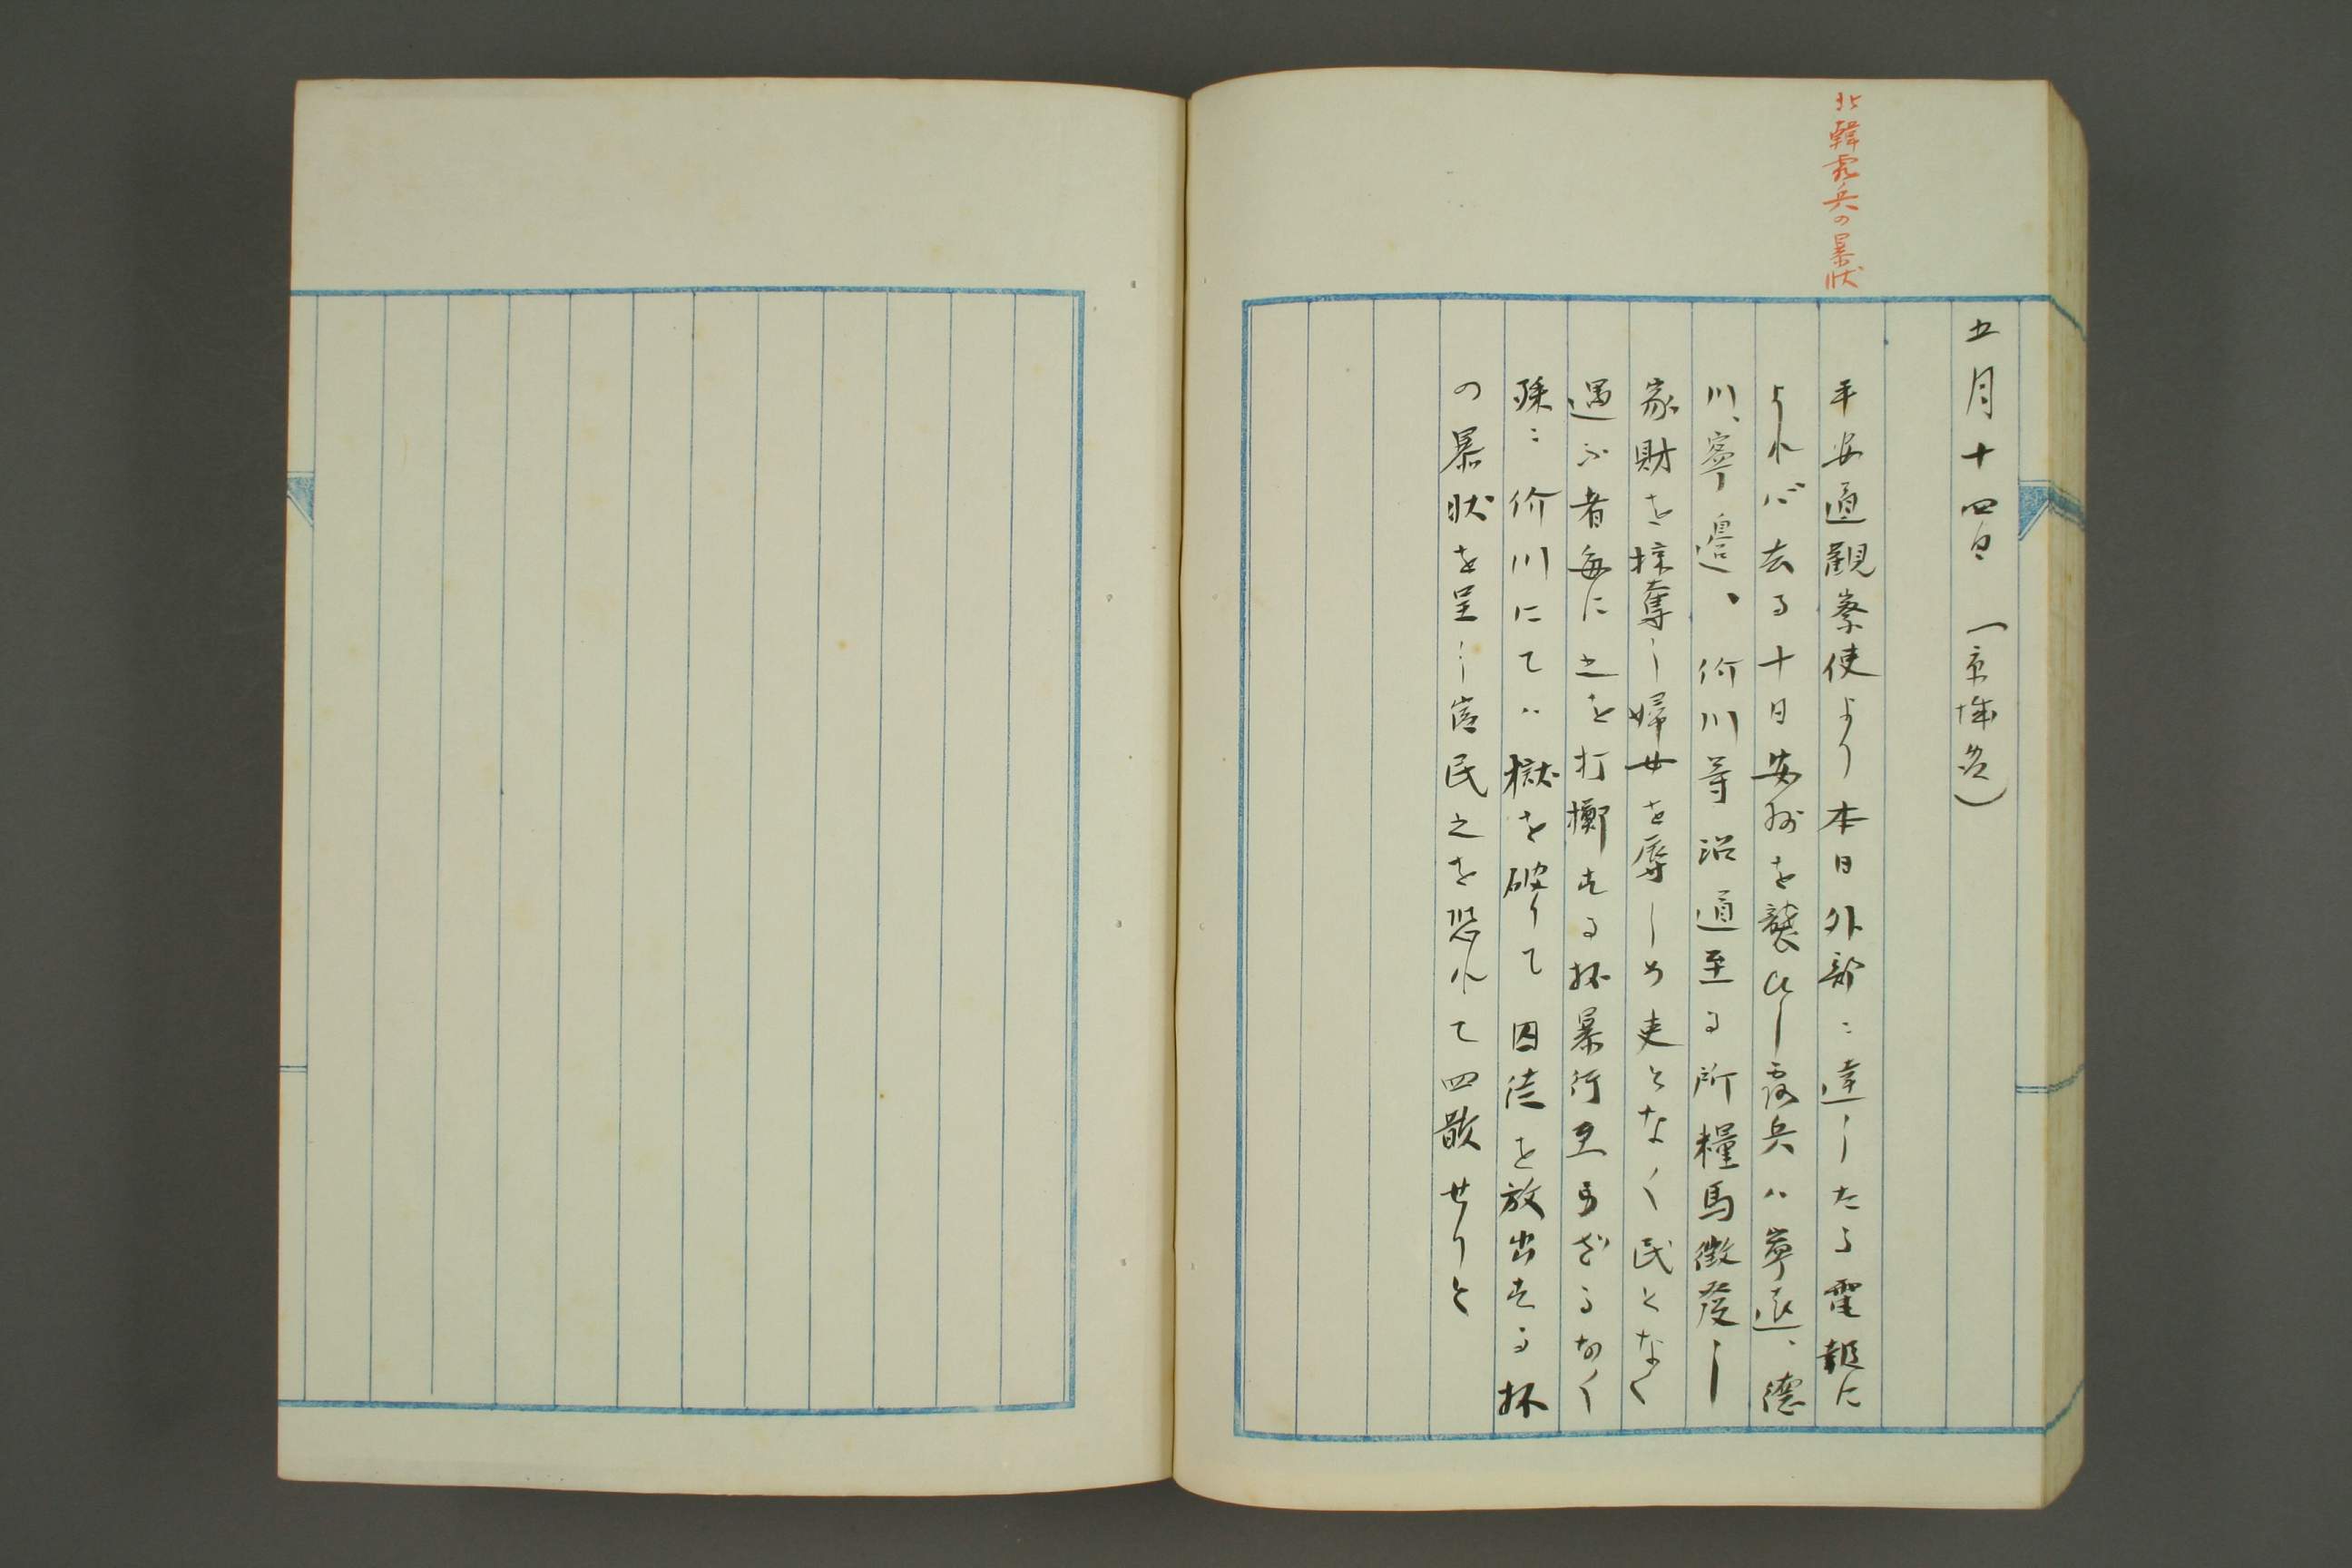 北韓露兵の暴状
五月十四日（京城発）
平安道観察使より本日外部ニ達したる電報に
よれバ去る十日安州を襲ひし露兵ハ寧遠、徳
川、寧邊、价川等沿道至る所糧馬徴發し
家財を掠奪し婦女を辱しめ吏となく民となく
遇ふ者毎に之を打擲する抔暴行至らざるなく
殊ニ价川にてハ獄を破りて囚徒を放出する抔
の暴状を呈し官民之を恐れて四散せりと